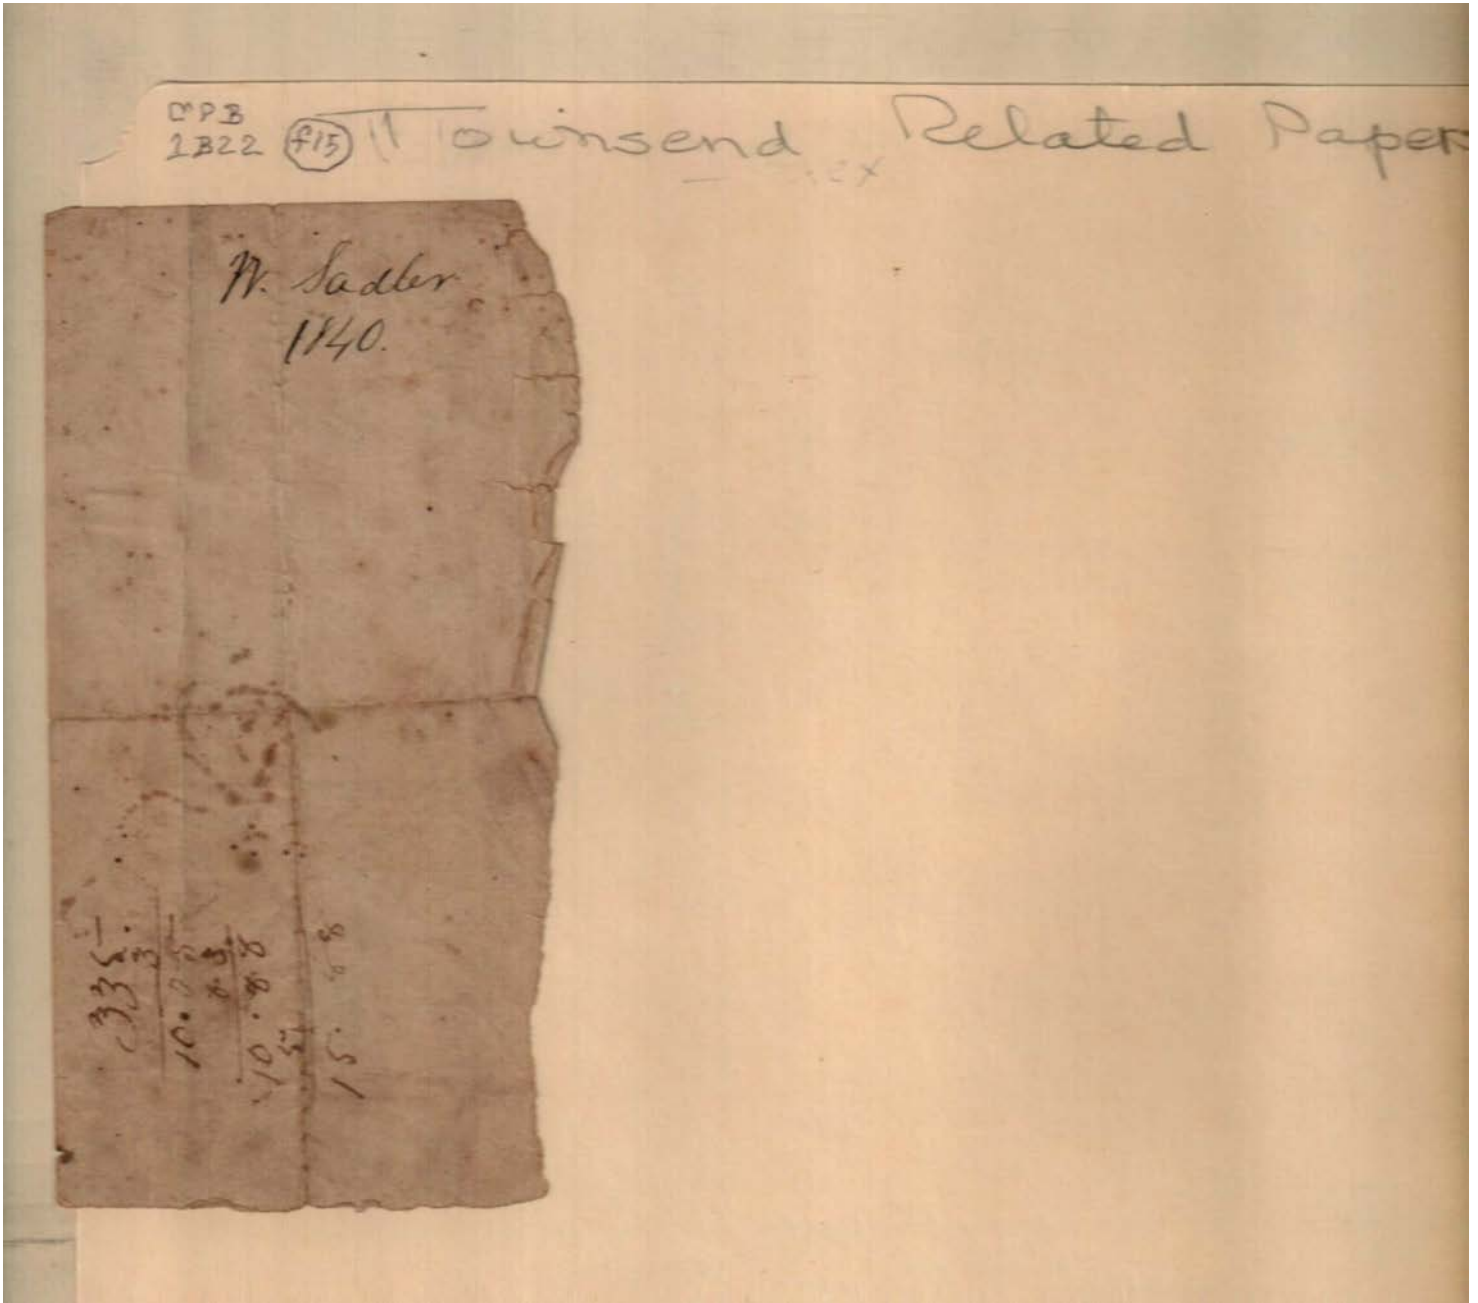 CPB
1B22 f15 Townsend Related Papers
W. Sadler
1840.
335
3.
10.05
83
10.88
5
15.88